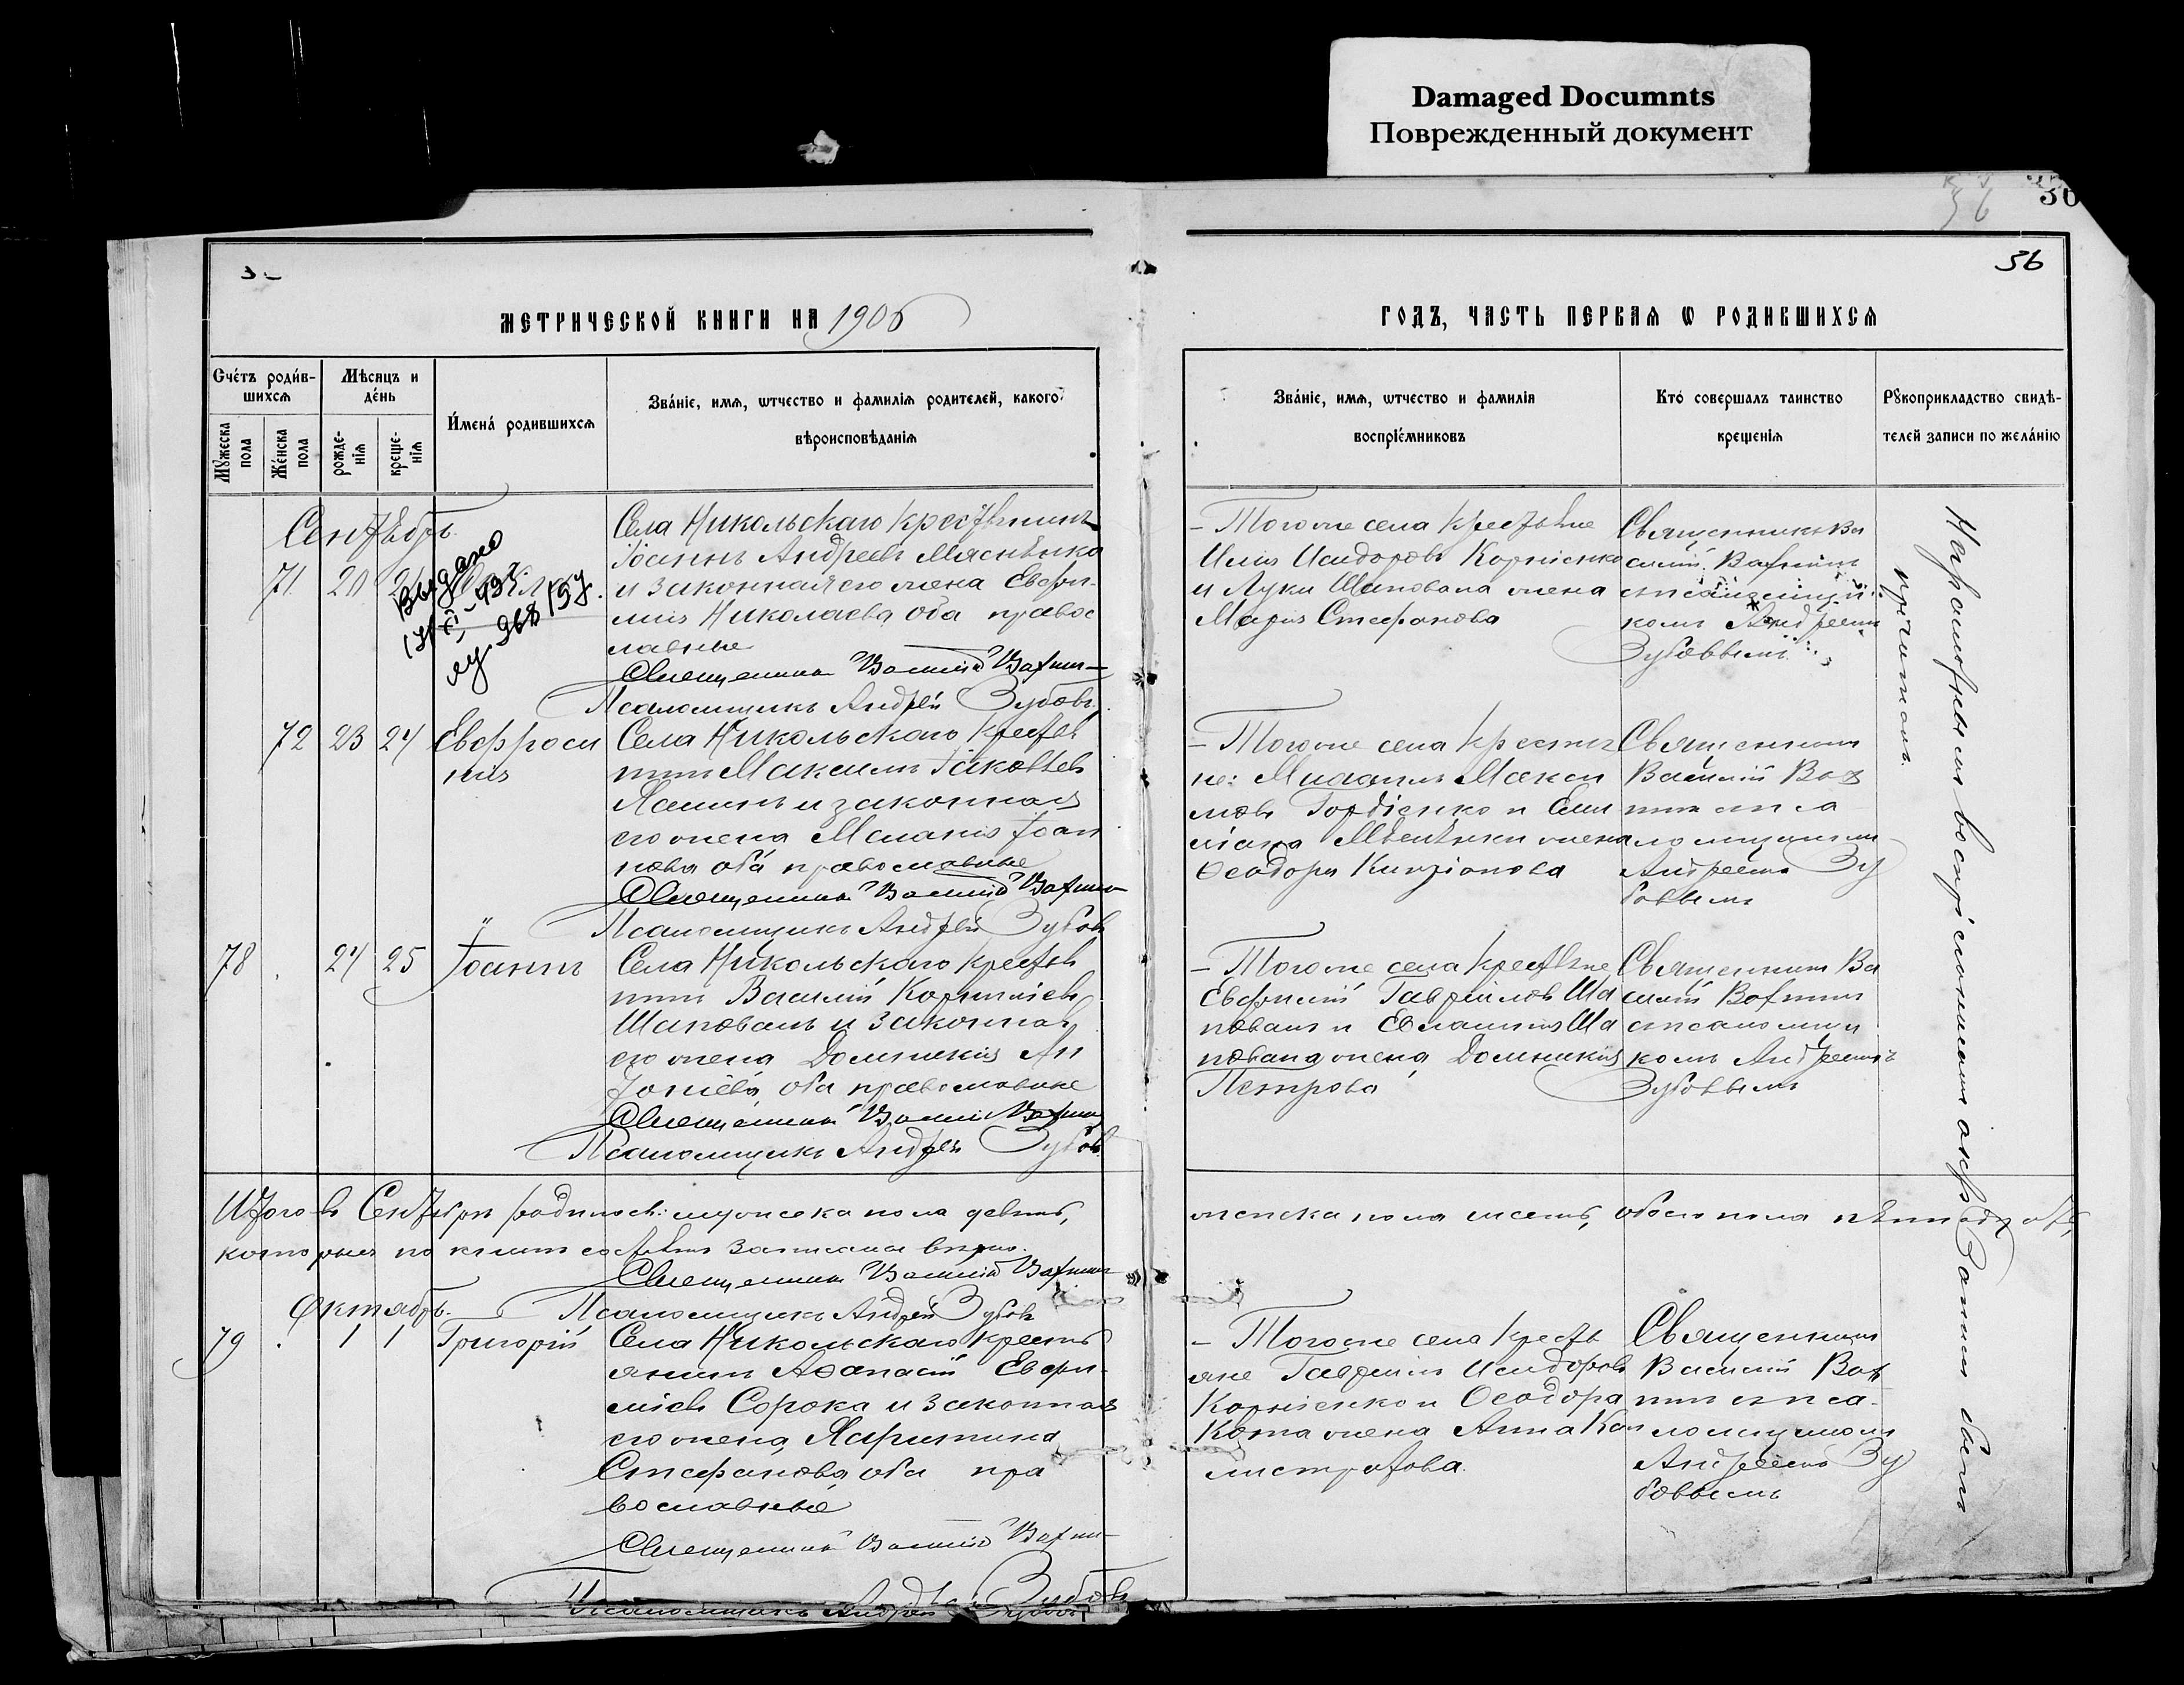 Damaged Documnts
Поврежденный документ
36
36
МЕТРИЧЕСКОЙ КНИГИ НА 1906
ГОДЪ, ЧАСТЬ ПЕРВАЯ Ѡ РОДИВШИХСЯ
Счéтъ роди́в-
шихсѧ
Мꙋжеска
пола
Же́нска
пола
Мѣсяцъ и
де́нь
рожде-
нїѧ
креще-
нїѧ
И́мена́ родившихсѧ
Зва́нїе, имѧ, ѿтчество и фамилїѧ родителей, какого
вѣроисповѣданїѧ
Зва́нїе, имѧ, ѿтчество и фамилїѧ
воспрїе́мниковъ
Кто́ совершалъ таинство
крещенїѧ
Рꙋкоприкладство свидѣ-
телей записи по жела́нїю
Сентябрь
71 20
Выдано
Села Никольскаго крестьянинъ
Іоаннъ Андреевъ Мясненко
и законная его жена Евфи-
мія Николаева оба правос
лавные
Священникъ Василій
Псаломщикъ Андрей Зубовъ
– Того же села крестьяне
Илія Исидоровъ Корніенко
и Луки Шаповала жена
Марія Стефанова
Священникъ Ва
силій
съ псаломщи
комъ Андреемъ
Зубовымъ
72 23 24 Евфроси
нія
Села Никольскаго крестья
нинъ Максимъ Іаковлевъ
и законная
его жена Меланія Іоан
нова оба православные
Священникъ Василій
Псаломщикъ Андрей Зубовъ
– Того же села крестья
не: Михаилъ Макси
мовъ Гордіенко и Еми
ліана жена
Ѳеодора
Священникъ
Василій
съ пса
ломщикомъ
Андреемъ Зу
бовымъ
78 24 25 Іоаннъ
Села Никольскаго крестья
нинъ Василій Корниліевъ
Шаповалъ и законная
его жена Домникія Ан
тоніева, оба православные
Священникъ Василій
Псаломщикъ Андрей Зубовъ
– Того же села крестьяне
Евфимій Гавріиловъ Ша
повалъ и Евлампія Ша
повала жена Домникія
Петрова
Священникъ Ва
силій
съ псаломщи
комъ Андреемъ
Зубовымъ
Итого въ Сентябрѣ родилось: мужеска пола девять,
женска пола шесть, обоего пола пятнадцать,
которые по книгѣ записаны вѣрно.
Священникъ Василій
Псаломщикъ Андрей Зубовъ
Октябрь.
79 1 1 Григорій
Села Никольскаго кресть
янинъ Аѳанасій Евфи-
міевъ Сорока и законная
его жена Харитина
Стефанова, оба пра
вославные
Священникъ Василій
Псаломщикъ Андрей Зубовъ
– Того же села кресть
яне Гавріилъ Исидоровъ
Корніенко и Ѳеодора
Кота жена Анна Кал
листратова.
Священникъ
Василій
съ пса-
ломщикомъ
Андреемъ Зу
бовымъ
Неграмотнымъ воспріемникамъ актъ записи былъ
прочитанъ.